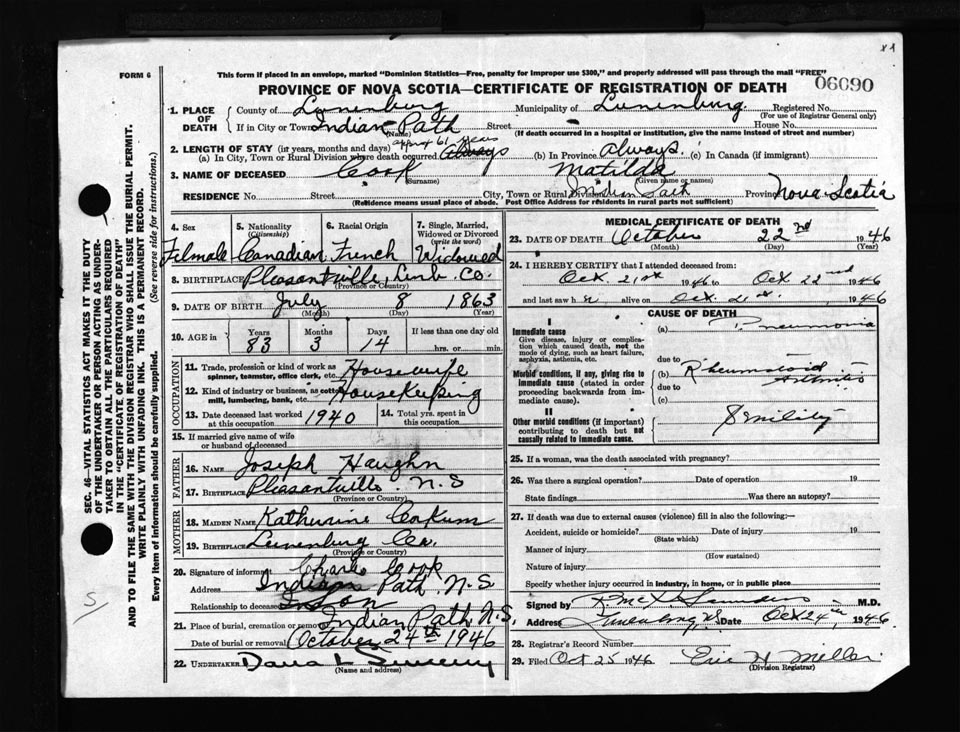 x 1
FORM 6
This form if placed in an envelope, marked "Dominion Statistics—Free, penalty for improper use $300," and properly addressed will pass through the mail "FREE"
PROVINCE OF NOVA SCOTIA—CERTIFICATE OF REGISTRATION OF DEATH
06090
1. PLACE OF DEATH
County of Lunenburg Municipality of Lunenburg. Registered No.
(For use of Registrar General only)
If in City or Town Indian Path Street House No.
(Name) (If death occurred in a hospital or institution, give the name instead of street and number)
2. LENGTH OF STAY (in years, months and days) approx 61 years
(a) In City, Town or Rural Division where death occurred Always (b) In Province always. (c) In Canada (if immigrant)
3. NAME OF DECEASED Cook Matilda
(Surname) (Given name or names)
RESIDENCE No. Street City, Town or Rural Division Indian Path Province Nova Scotia
(Residence means usual place of abode. Post Office Address for residents in rural parts not sufficient)
4. Sex
Female
5. Nationality
(Citizenship)
Canadian
6. Racial Origin
French
7. Single, Married, Widowed or Divorced
(write the word)
Widowed
8. BIRTHPLACE Pleasantville, Lunb. Co.
(Province or Country)
9. DATE OF BIRTH July 8 1863
(Month) (Day) (Year)
10. AGE in
Years Months Days If less than one day old
83 3 14 hrs. or min.
OCCUPATION
11. Trade, profession or kind of work as spinner, teamster, office clerk, etc. Housewife
12. Kind of industry or business, as cotton mill, lumbering, bank, etc. Housekeeping
13. Date deceased last worked at this occupation 1940
14. Total yrs. spent in this occupation
15. If married give name of wife or husband of deceased
FATHER
16. NAME Joseph Haughn
17. BIRTHPLACE Pleasantville N.S
(Province or Country)
MOTHER
18. MAIDEN NAME Katherine Corkum
19. BIRTHPLACE Lunenburg Co.
(Province or Country)
20. Signature of informant Charlie Cook
Address Indian Path N.S
Relationship to deceased Son
21. Place of burial, cremation or removal Indian Path N.S.
Date of burial or removal October 24th 1946
22. UNDERTAKER Dana L Sweeny
(Name and address)
MEDICAL CERTIFICATE OF DEATH
23. DATE OF DEATH October 22nd 1946
(Month) (Day) (Year)
24. I HEREBY CERTIFY that I attended deceased from:
Oct. 21st 1946 to Oct 22nd 1946
and last saw her alive on Oct. 21st, 1946
CAUSE OF DEATH
I
Immediate cause
Give disease, injury or complication which caused death, not the mode of dying, such as heart failure, asphyxia, asthenia, etc.
(a) Pneumonia
due to
Morbid conditions, if any, giving rise to immediate cause (stated in order proceeding backwards from immediate cause).
(b) Rheumatoid Arthritis
due to
(c)
II
Other morbid conditions (if important) contributing to death but not causally related to immediate cause.
Senility
25. If a woman, was the death associated with pregnancy?
26. Was there a surgical operation? Date of operation 19
State findings Was there an autopsy?
27. If death was due to external causes (violence) fill in also the following:—
Accident, suicide or homicide? Date of injury 19
(State which)
Manner of injury
(How sustained)
Nature of injury
Specify whether injury occurred in industry, in home, or in public place
Signed by Saunders M.D.
Address Lunenburg, NS Date Oct 24th, 1946
28. Registrar's Record Number
29. Filed Oct 25 1946 Eric H. Millar
(Division Registrar)
SEC. 46—VITAL STATISTICS ACT MAKES IT THE DUTY OF THE UNDERTAKER OR PERSON ACTING AS UNDERTAKER TO OBTAIN ALL THE PARTICULARS REQUIRED IN THE "CERTIFICATE OF REGISTRATION OF DEATH"
AND TO FILE THE SAME WITH THE DIVISION REGISTRAR WHO SHALL ISSUE THE BURIAL PERMIT.
WRITE PLAINLY WITH UNFADING INK. THIS IS A PERMANENT RECORD.
Every item of information should be carefully supplied. (See reverse side for instructions).
S/